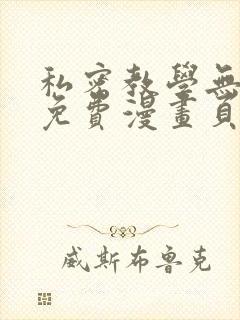 私密教學無
免費漫畫頁
威斯布魯克